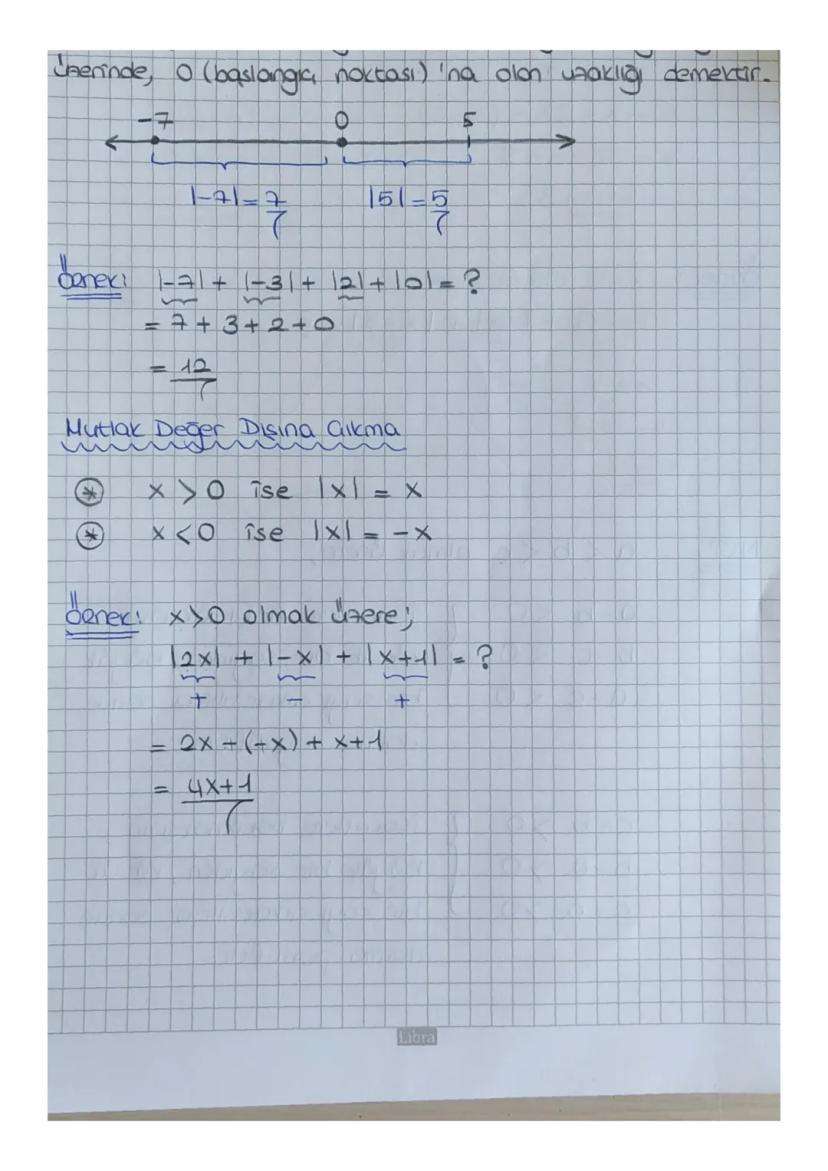 üzerinde, 0 (başlangıç noktası) 'na olan uzaklığı demektir.
-7 0 5
|-7| = 7 |5| = 5
Örnek: |-7| + |-3| + |2| + |0| = ?
= 7 + 3 + 2 + 0
= 12
Mutlak Değer Dışına Çıkma
* x > 0 ise |x| = x
* x < 0 ise |x| = -x
Örnek: x>0 olmak üzere;
|2x| + |-x| + |x+1| = ?
+ - +
= 2x - (-x) + x+1
= 4x+1
Libra